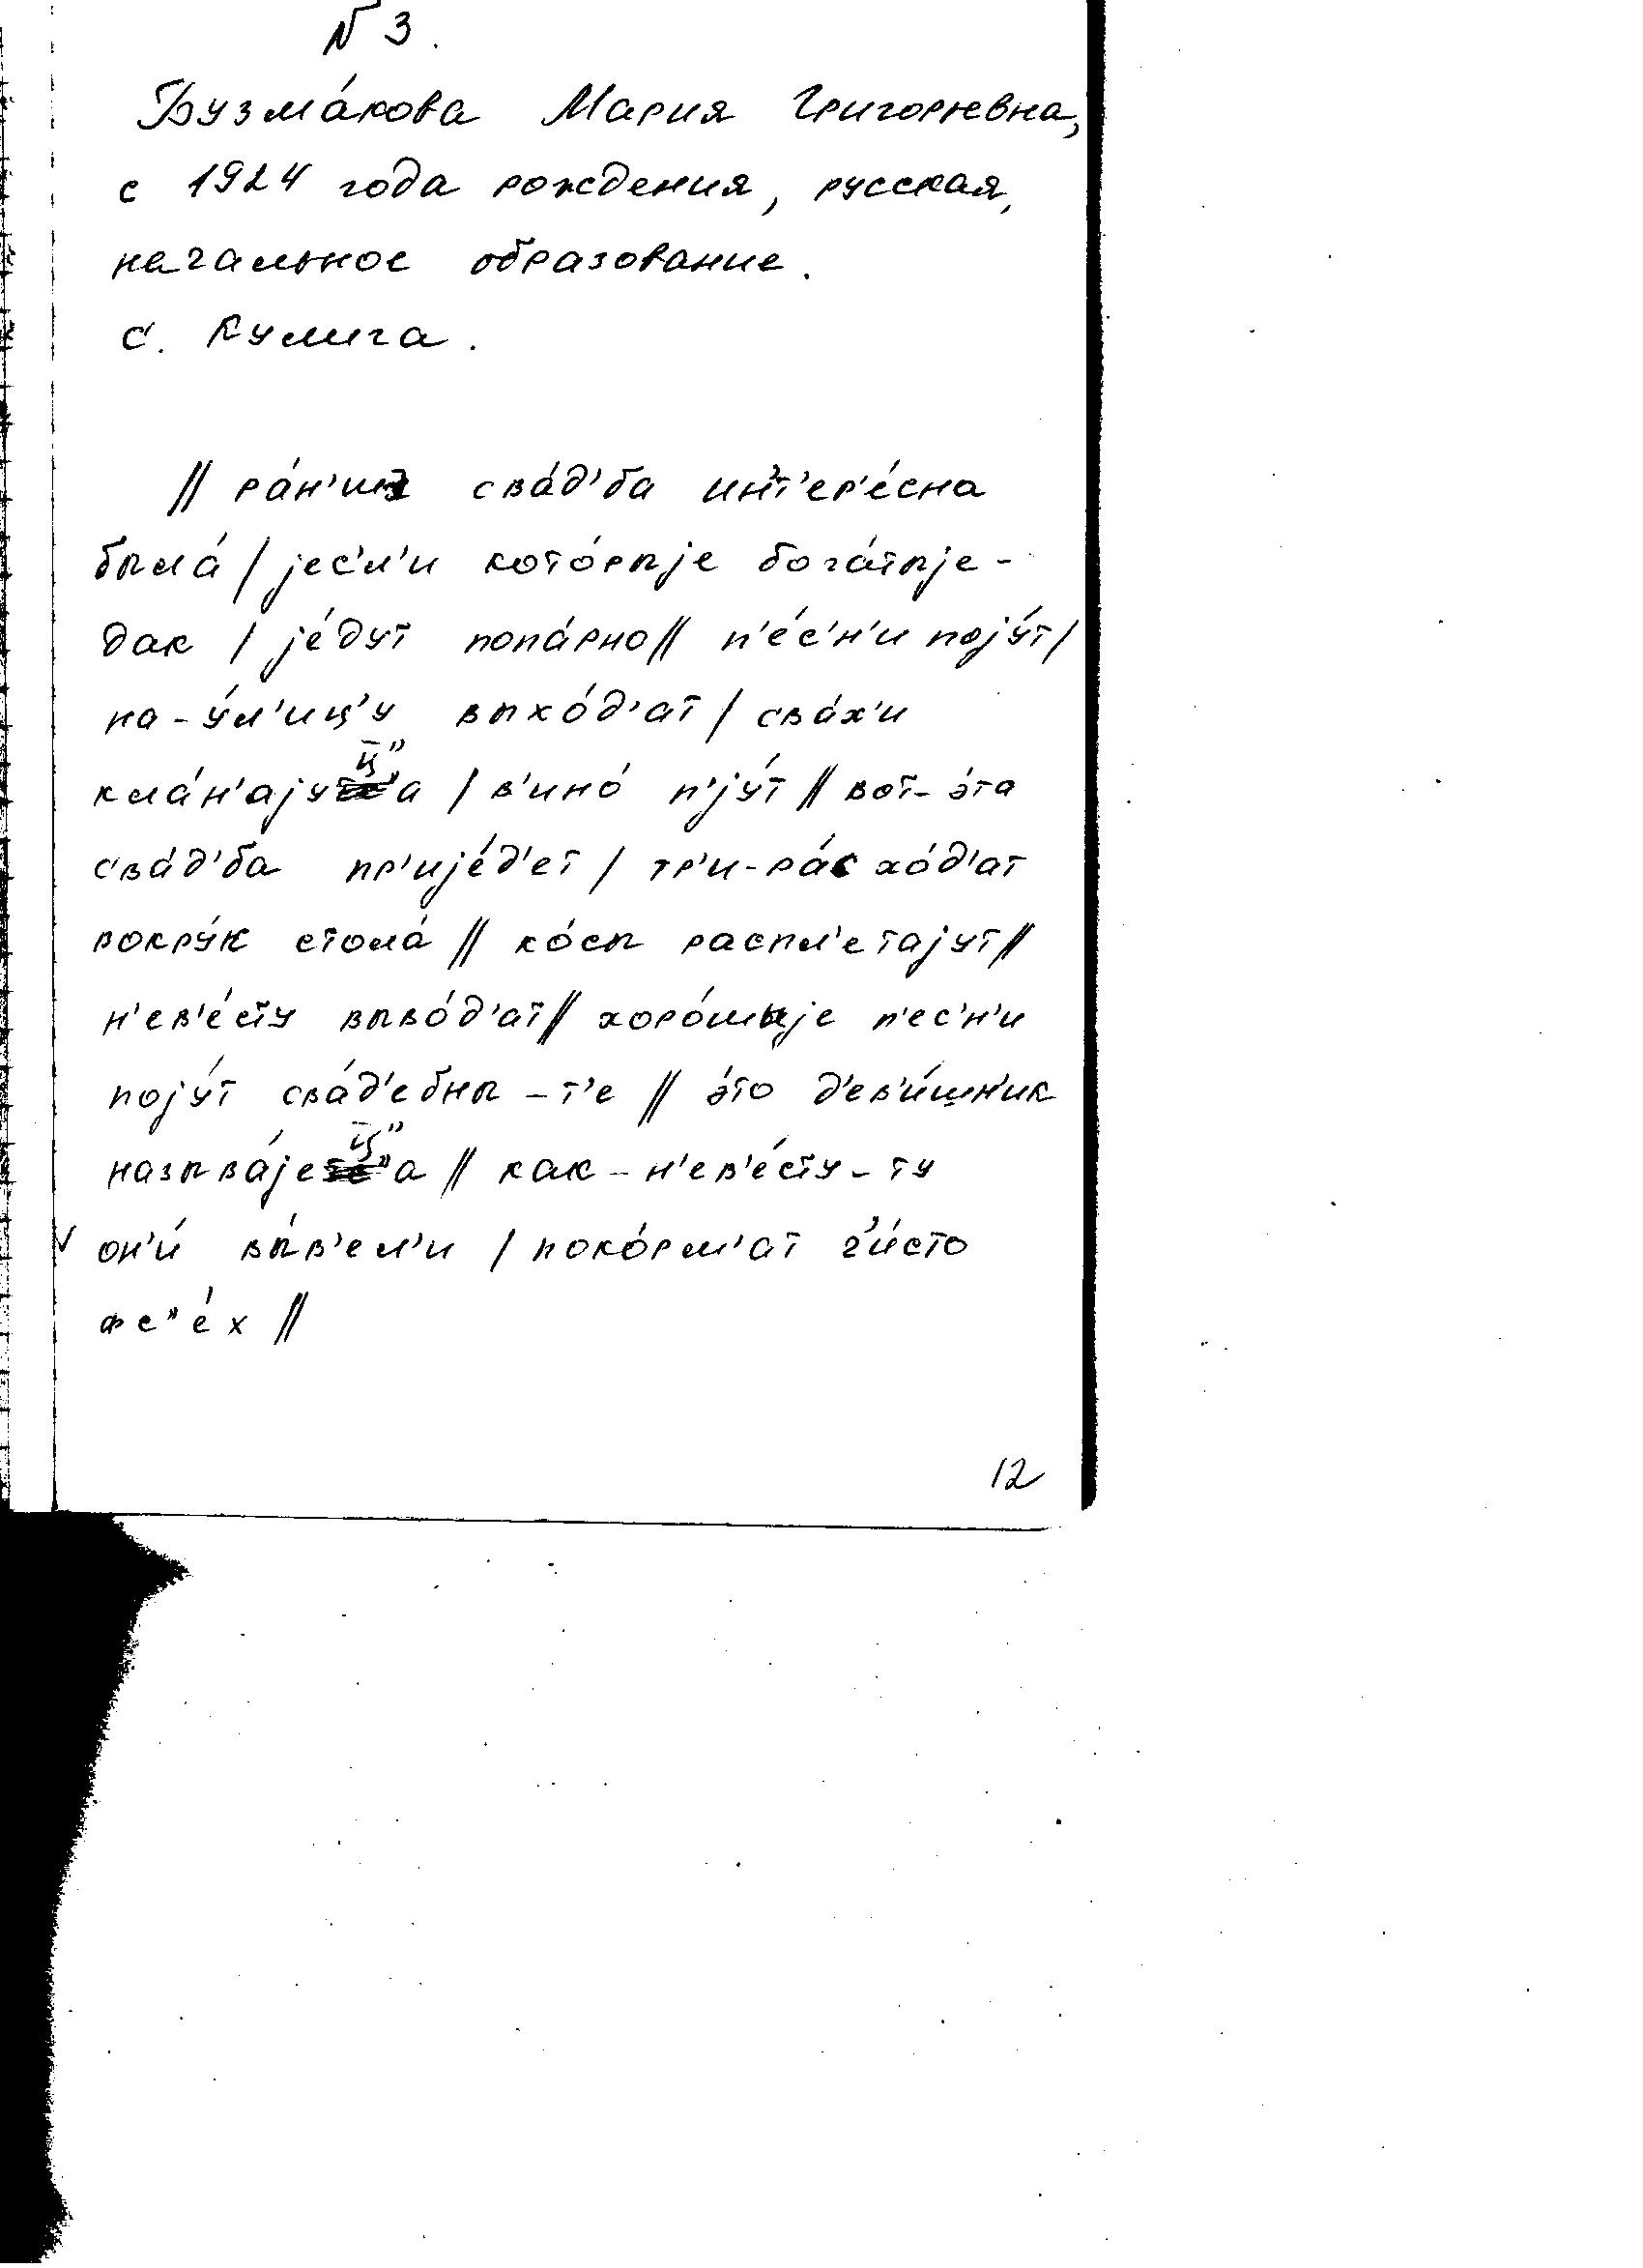 N 3.
Бузма́кова Мария Григорьевна,
с 1924 года рождения, русская,
начальное образование.
с. Кулига.
// ра́н'ишэ сва́д'ба ин'т'ер'е́сна
была́ / јес'л'и кото́рыје бога́тыје -
дак / је́дут попа́рно // п'е́с'н'и пој́ут /
на - у́л'иц'у выхо́д'ат / сва́х'и
кла́н'ајуц̄"а / в'ино́ п'ју́т // вот - э́та
сва́д'ба пр'ије́д'ет / тр'и - ра́с хо́д'ат
вокру́к стола́ // ко́сы распл'етајут //
н'ев'е́сту выво́д'ат // хоро́шыје п'ес'н'и
поју́т сва́д'ебны - т'е // э́то д'ев'и́шн'ик
называ́јец̄"а // как - н'ев'е́сту - ту
он'и́ вы́в'ел'и / поко́рм'ат ч'и́сто
фс"е́х //
12